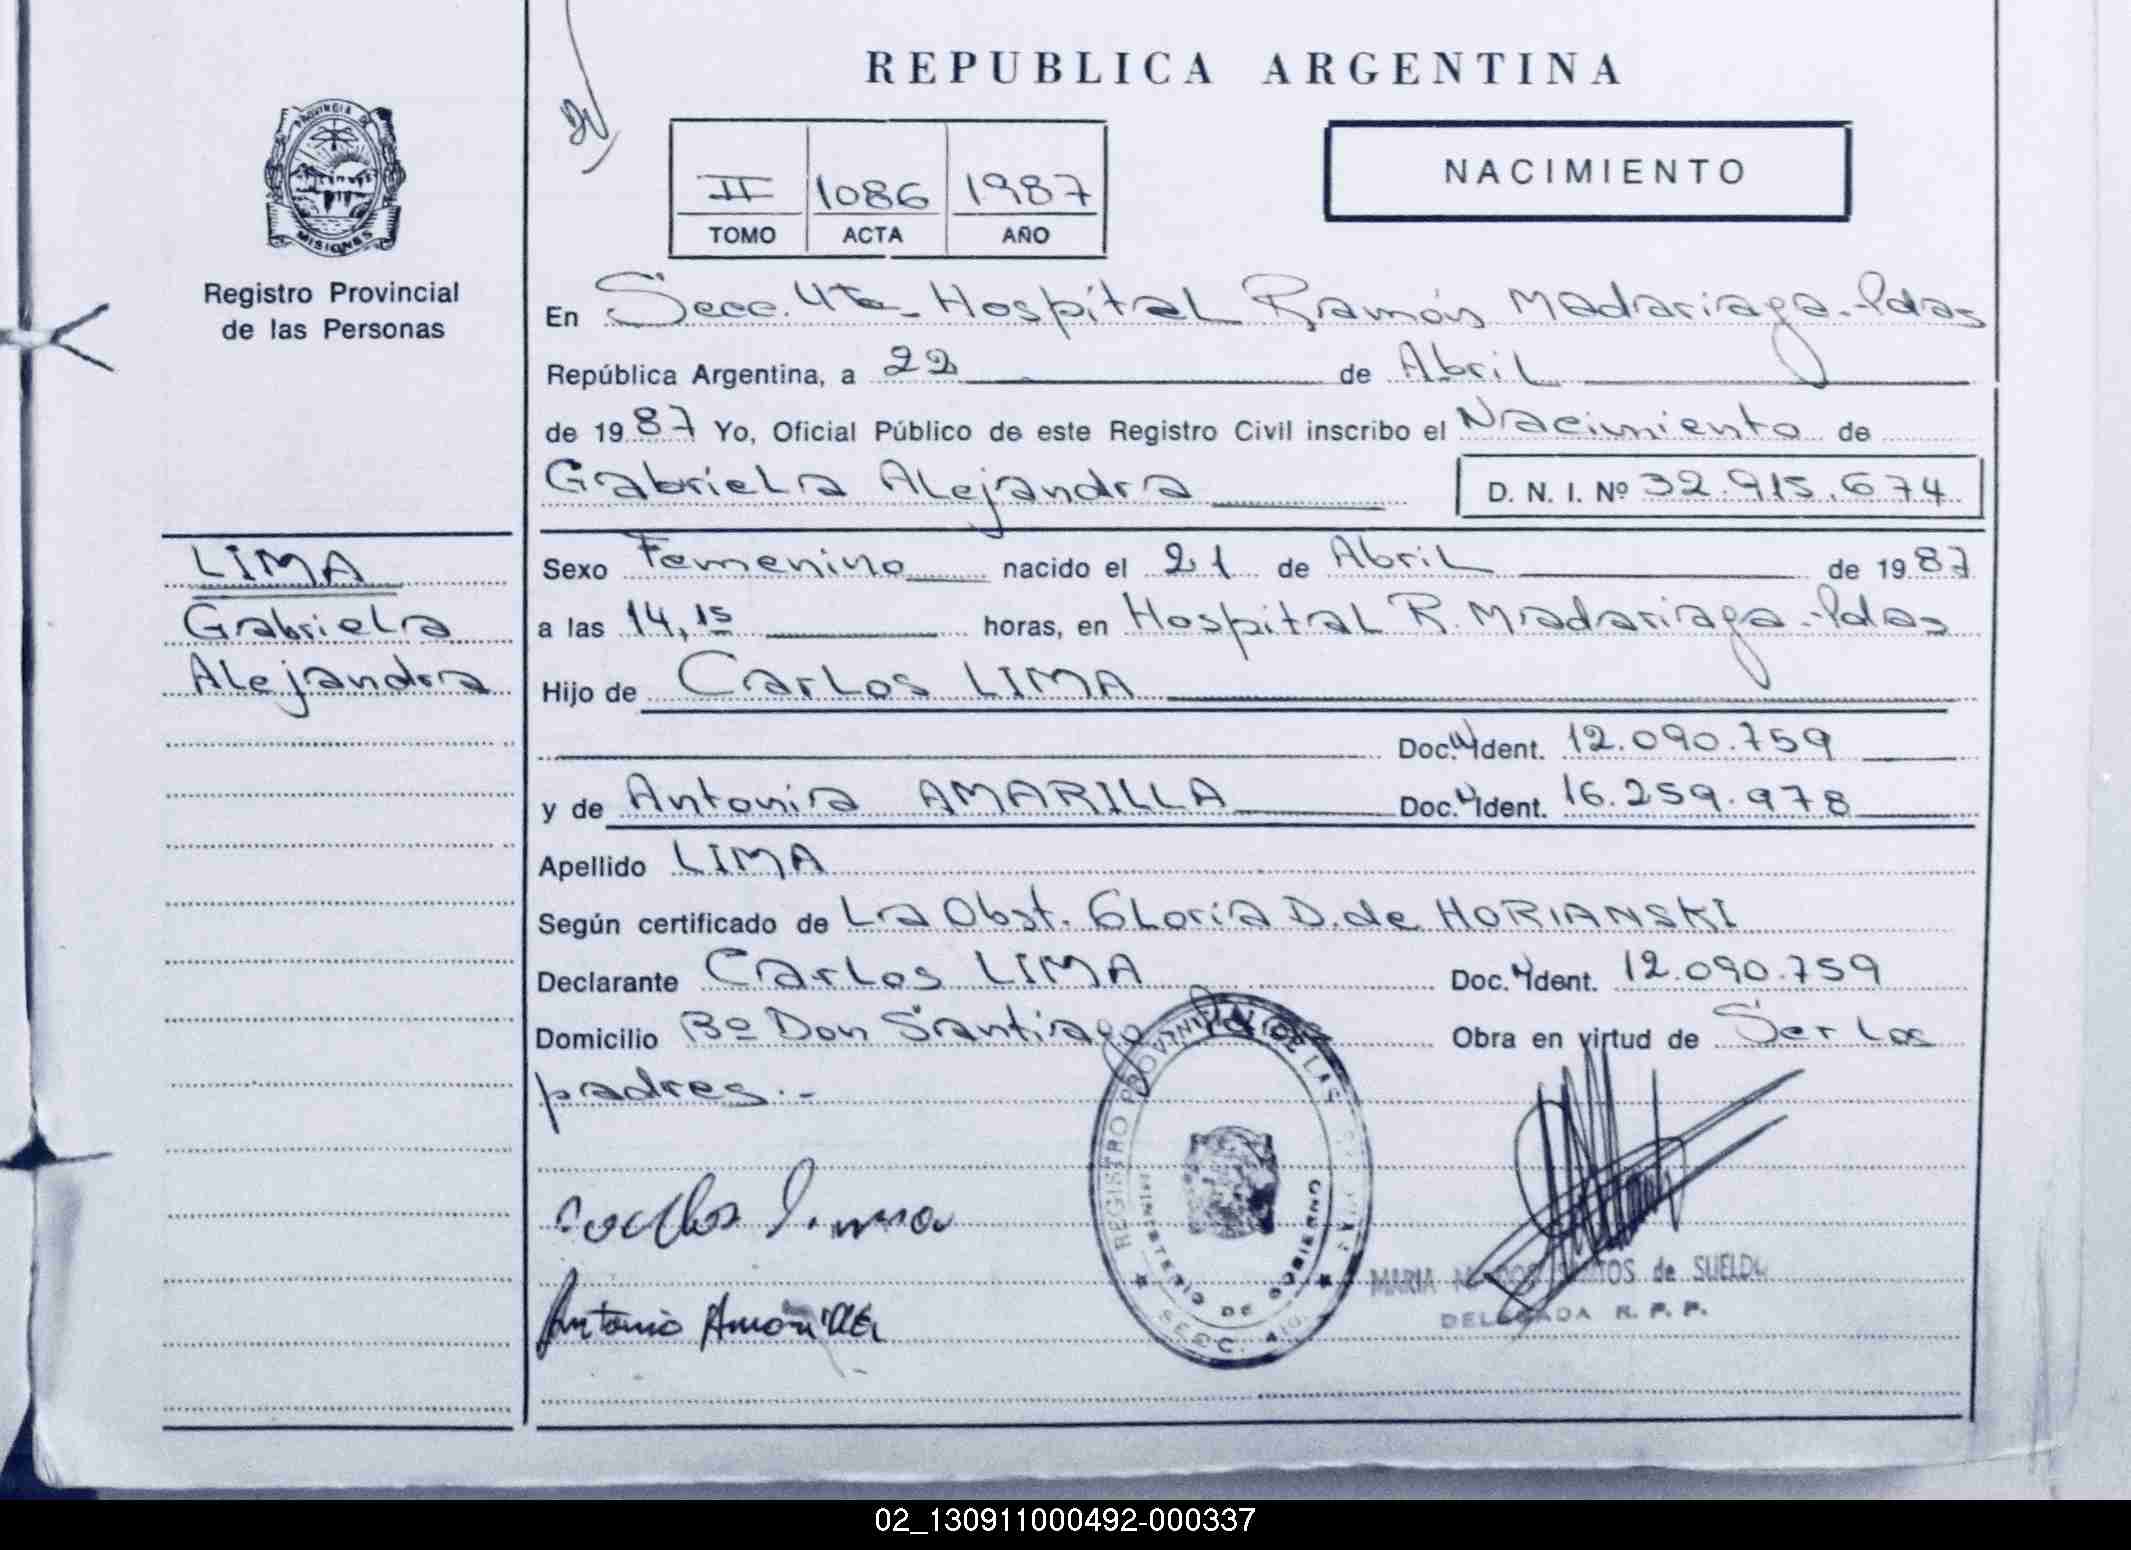 REPUBLICA ARGENTINA
PROVINCIA DE
MISIONES
Registro Provincial
de las Personas
II 1086 1987
TOMO ACTA AÑO
NACIMIENTO
En Secc. 4ta - Hospital Ramón Madariaga - Pdas
República Argentina, a 22 de Abril
de 1987 Yo, Oficial Público de este Registro Civil inscribo el Nacimiento de
Gabriela Alejandra D. N. I. Nº 32.915.674
LIMA
Gabriela
Alejandra
Sexo Femenino nacido el 21 de Abril de 1987
a las 14,15 horas, en Hospital R. Madariaga - Pdas
Hijo de Carlos LIMA
Doc. Ident. 12.090.759
y de Antonia AMARILLA Doc. Ident. 16.259.978
Apellido LIMA
Según certificado de La Obst. Gloria D. de HORIANSKI
Declarante Carlos LIMA Doc. Ident. 12.090.759
Domicilio Bº Don Santiago Obra en virtud de Ser los
padres.-
REGISTRO PROVINCIAL DE LAS
MINISTERIO DE GOBIERNO
SECC.
Carlos Lima
Antonia Amarilla
MARIA de SUELDO
DELEGADA R. P. P.
02_130911000492-000337